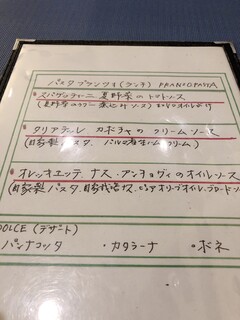 パスタプランツォ(ランチ) PRANZOPASTA
スパゲッティーニ 夏野菜のトマトソース
(夏野菜のラグー 煮込みソース)
タリアテーレ カボチャの クリームソース
(自家製パスタ. クリーム)
オレッキエッテ ナス・アンチョヴィのオイルソース
(自家製パスタ. 自家栽培ナス. ピュアオリーブオイル. ブロードソ
DOLCE (デザート)
パンナコッタ ・カタラーナ ・ボネ